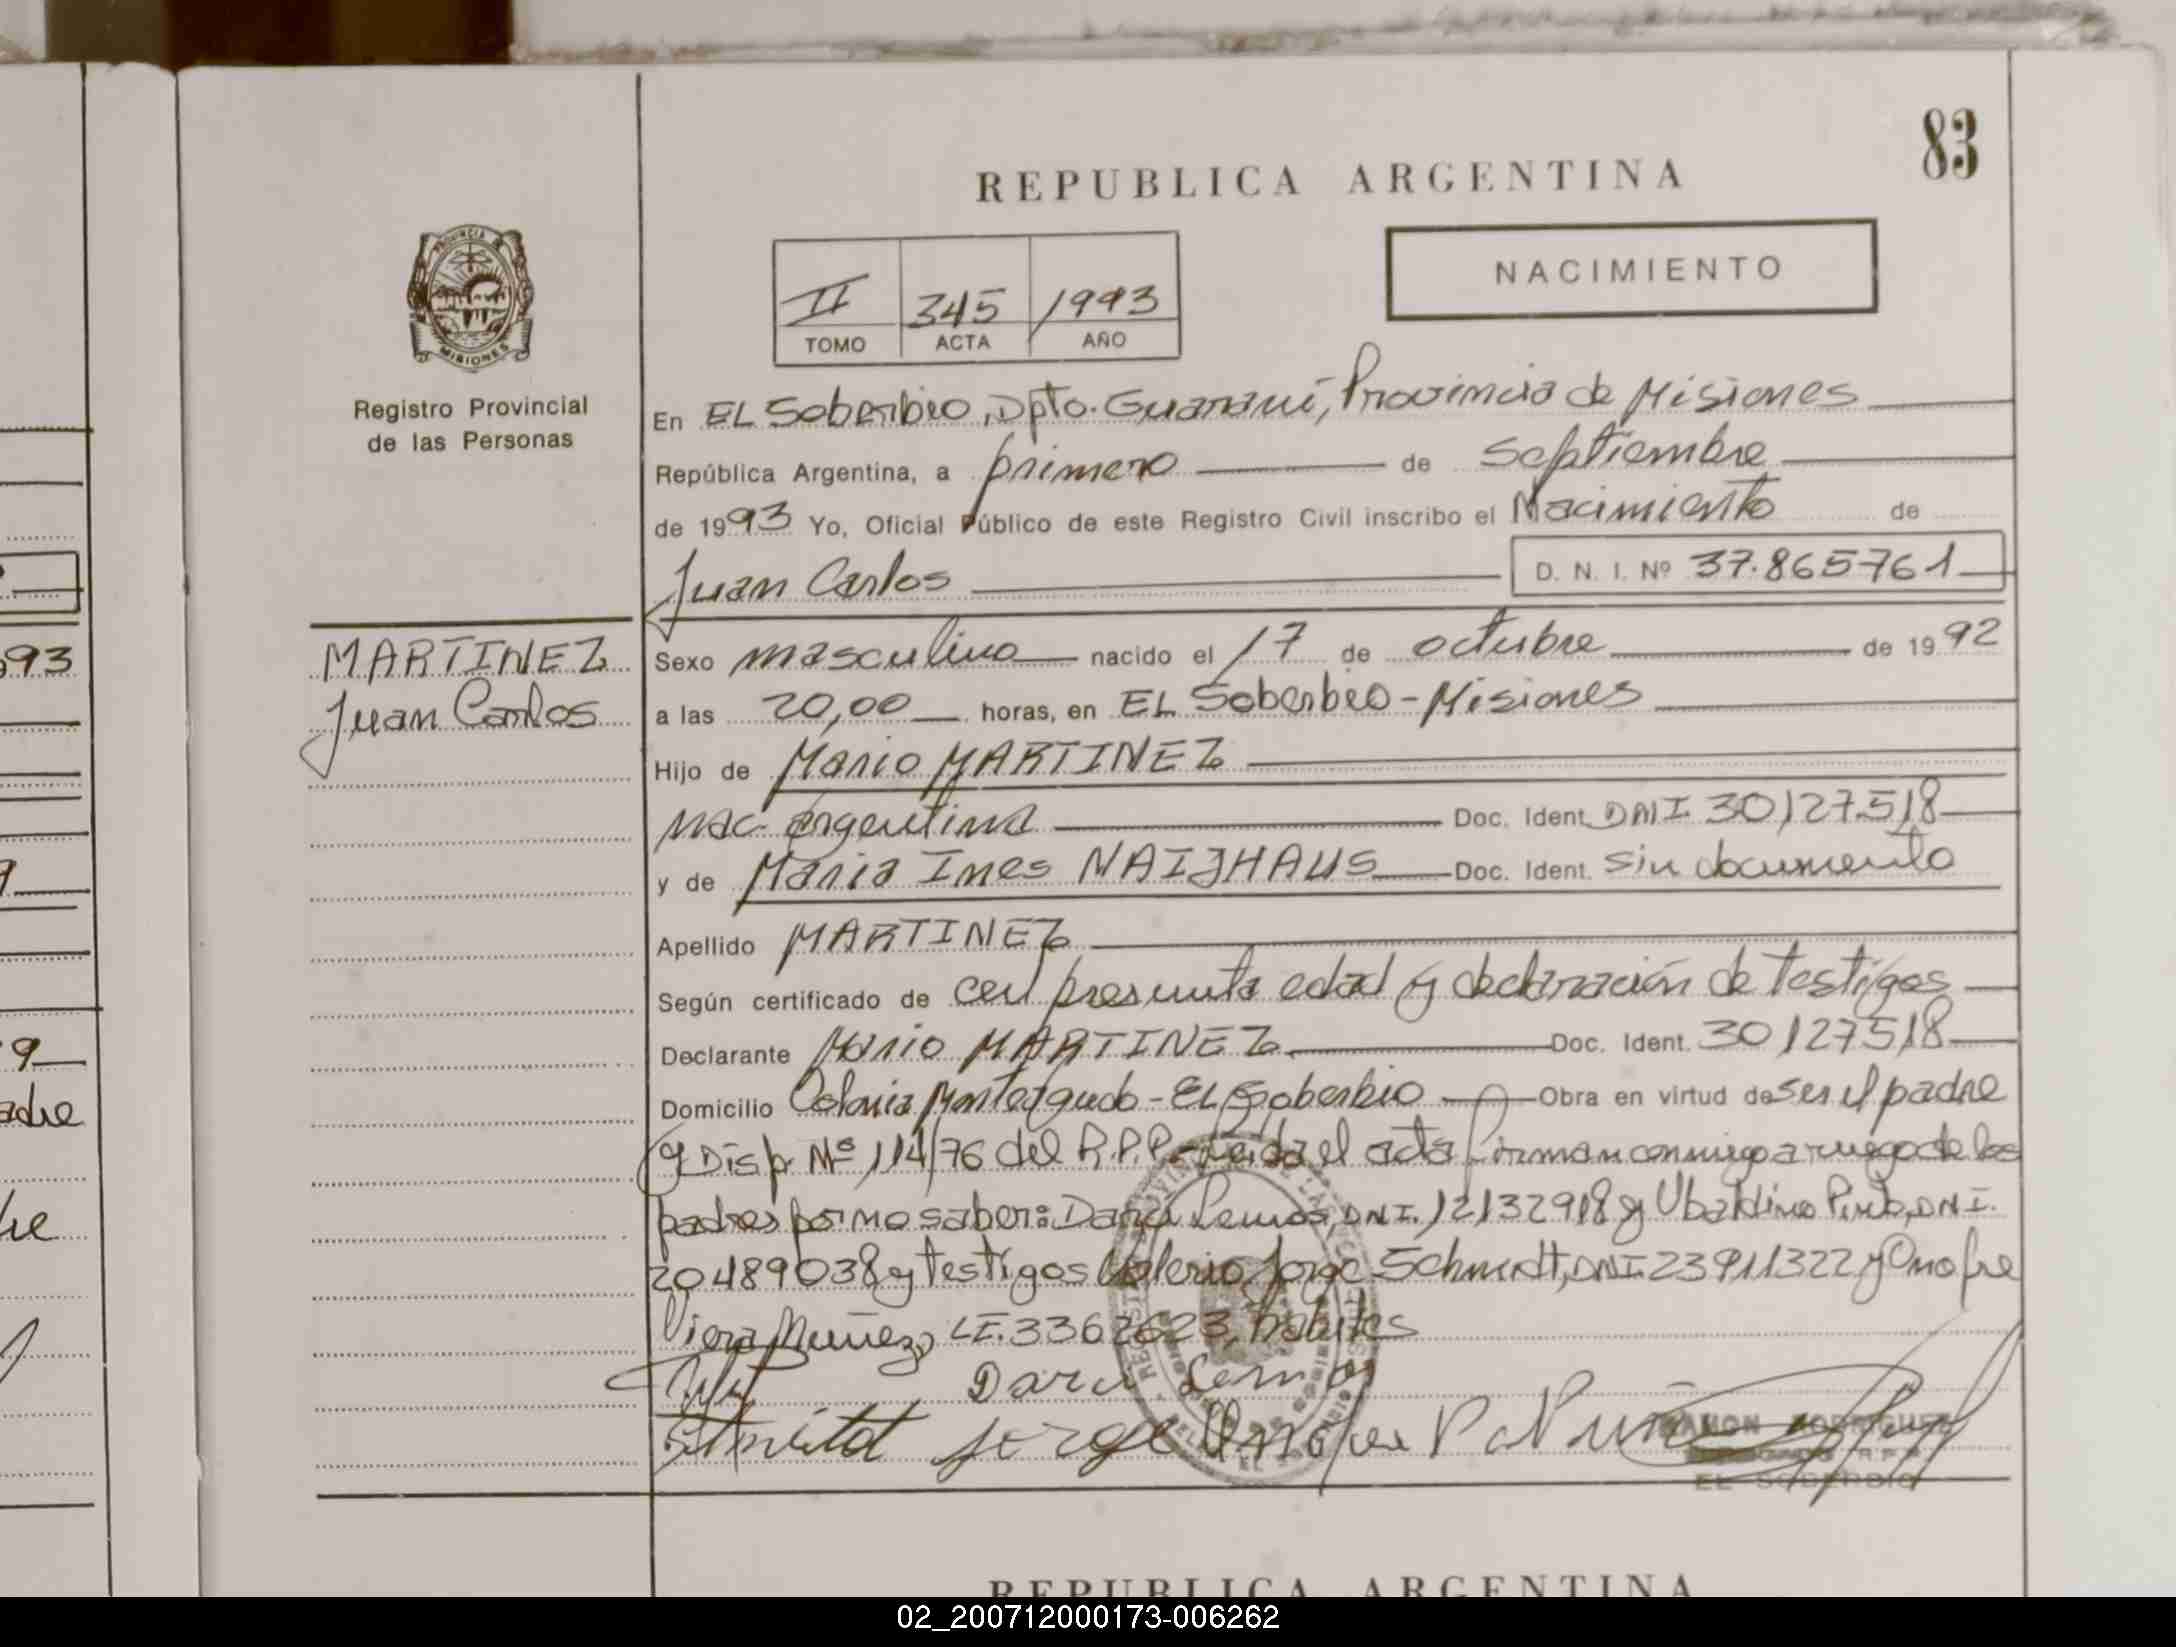 83
REPUBLICA ARGENTINA
NACIMIENTO
II 345 1993
TOMO ACTA AÑO
PROVINCIA DE
MISIONES
Registro Provincial
de las Personas
En EL Soberbio, Dpto. Guaraní, Provincia de Misiones
República Argentina, a primero de Septiembre
de 1993 Yo, Oficial Público de este Registro Civil inscribo el Nacimiento de
Juan Carlos D. N. I. Nº 37.865761
MARTINEZ
Juan Carlos
Sexo masculino nacido el 17 de octubre de 1992
a las 20,00 horas, en EL Soberbio - Misiones
Hijo de Mario MARTINEZ
nac. argentina Doc. Ident. DNI 30127518
y de Maria Ines NAIJHAUS Doc. Ident. Sin documento
Apellido MARTINEZ
Según certificado de cert presunta edad y declaración de testigos
Declarante Mario MARTINEZ Doc. Ident. 30127518
Domicilio Colonia Monteagudo - EL Soberbio Obra en virtud de ser el padre
y Disp. Nº 114/76 del R.P.P. - Leida el acta firman conmigo a ruego de los
padres por no saber: Darci Lemos, DNI. 12132918 y Ubaldino DNI.
20489038 y testigos Valerio Jorge Schmidt, DNI 23911322 y Onofre
Viera Muñez, LE. 3362623, habiles
Darci Lemos
Schmidt Jorge Onofre V Muñez
RAMON RODRIGUEZ
R.P.P.
EL SOBERBIO
REPUBLICA ARGENTINA
93
9
9
adre
re
02_200712000173-006262